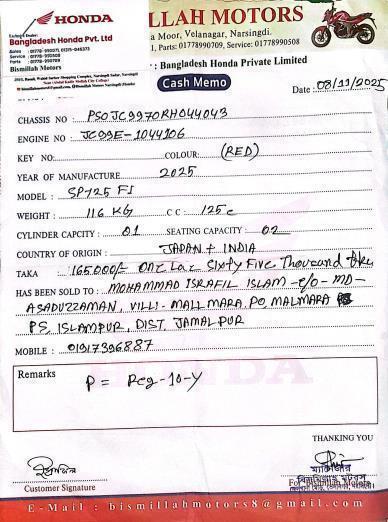 HONDA
LLAH MOTORS
Bangladesh Honda Pvt. Ltd
a Moor, Velanagar, Narsingdi.
1, Parts: 01778990709, Service: 01778990508
Bismillah Motors
: Bangladesh Honda Private Limited
Cash Memo
Date : 08/11/2025
CHASSIS NO : PS0JC9970RH044043
ENGINE NO JC99E-1044106
KEY NO: COLOUR: (RED)
YEAR OF MANUFACTURE 2025
MODEL : SP125 FI
WEIGHT : 116 KG CC : 125c
CYLINDER CAPCITY : 01 SEATING CAPACITY : 02
COUNTRY OF ORIGIN : JAPAN + INDIA
TAKA 165000/- One Lac Sixty Five Thousand
HAS BEEN SOLD TO : MOHAMMAD ISRAFIL ISLAM -c/o- MD-
ASADUZZAMAN, VILLI- MALLMARA, PO MALMARA
PS, ISLAMPUR, DIST, JAMALPUR
MOBILE : 01917396887
Remarks
P = Reg-10-Y
THANKING YOU
Customer Signature
For Bismillah Motors
E-Mail : bismillahmotors8@gmail.com